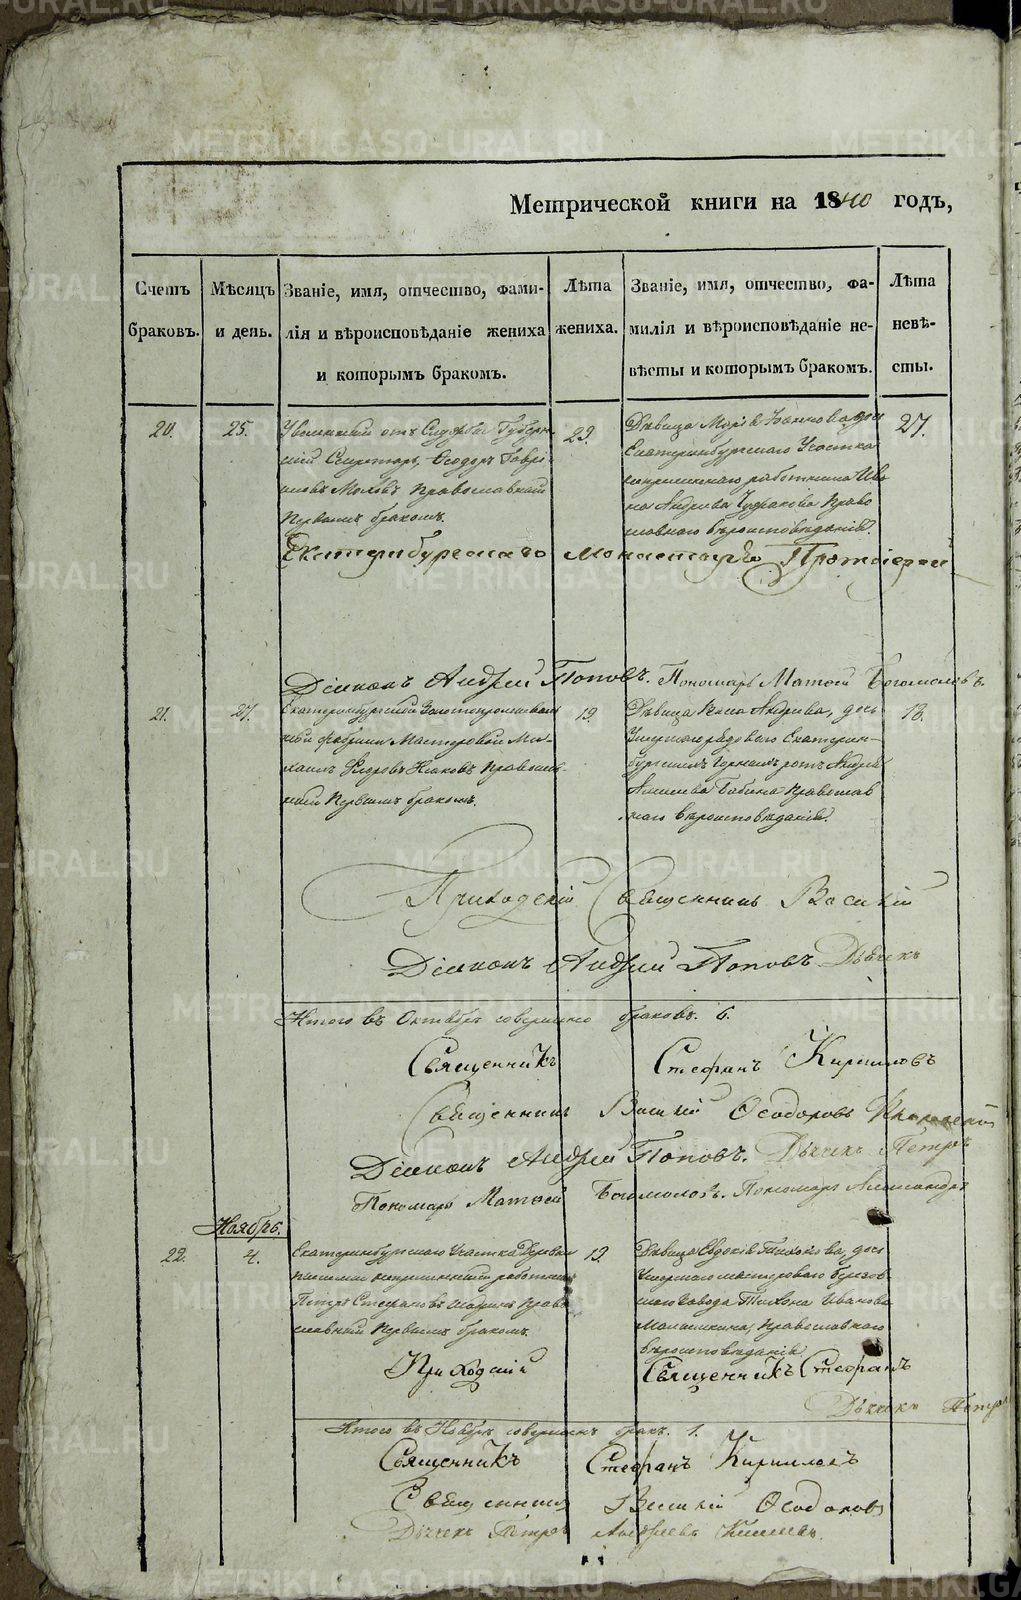 Метрической книги на 1840 годъ,
Счетъ браковъ.
Мѣсяцъ и день.
Званіе, имя, отчество, фами-
лія и вѣроисповѣданіе жениха
и которымъ бракомъ.
Лѣта жениха.
Званіе, имя, отчество, фа-
милія и вѣроисповѣданіе не-
вѣсты и которымъ бракомъ.
Лѣта невѣ-
сты.
20. 25.
Уволенный отъ Губерн-
скій Секретарь, Ѳеодоръ Гаври-
ловъ православный
Первымъ бракомъ.
29.
Дѣвица дочь
Екатеринбургскаго Участка
непремѣннаго работника Ива
на Андреева Право
славнаго вѣроисповѣданія.
27.
Екатеринбургскаго Монастыря Протоіерей
Діаконъ Андрей Поповъ. Пономарь Матѳей Богомоловъ.
21. 27.
Екатеринбургской Золотопромываль
ной фабрики Мастеровой Ми-
хаилъ Православ-
ный Первымъ бракомъ.
19.
Дѣвица Андреева, дочь
Умершаго рядоваго Екатерин-
бургскихъ Горныхъ ротъ Андрея
Бабина Православ
наго вѣроисповѣданія.
18.
Приходскій Священникъ Василій
Діаконъ Андрей Поповъ Дьячекъ
Итого въ Октябрѣ совершено браковъ. 6.
Священникъ Стефанъ Кирилловъ
Священникъ Василій Ѳеодоровъ
Діаконъ Андрей Поповъ. Дьячекъ Петръ
Пономарь Матѳей Богомоловъ. Пономарь Александръ
Ноябрь.
22. 4.
Екатеринбургскаго Участка Деревни
непремѣнный работникъ
Петръ Стефановъ Право
славный Первымъ бракомъ.
19.
Дѣвица Евдокія Тихонова, дочь
Умершаго мастероваго Березов-
скаго Завода Тихона Иванова
Православнаго
вѣроисповѣданія.
Приходскій Священникъ Стефанъ
Дьячекъ Петръ
Итого въ Ноябрѣ совершенъ бракъ. 1.
Священникъ Стефанъ Кирилловъ
Священникъ Василій Ѳеодоровъ
Дьячекъ Петръ Андреевъ
METRIKI.GASO-URAL.RU